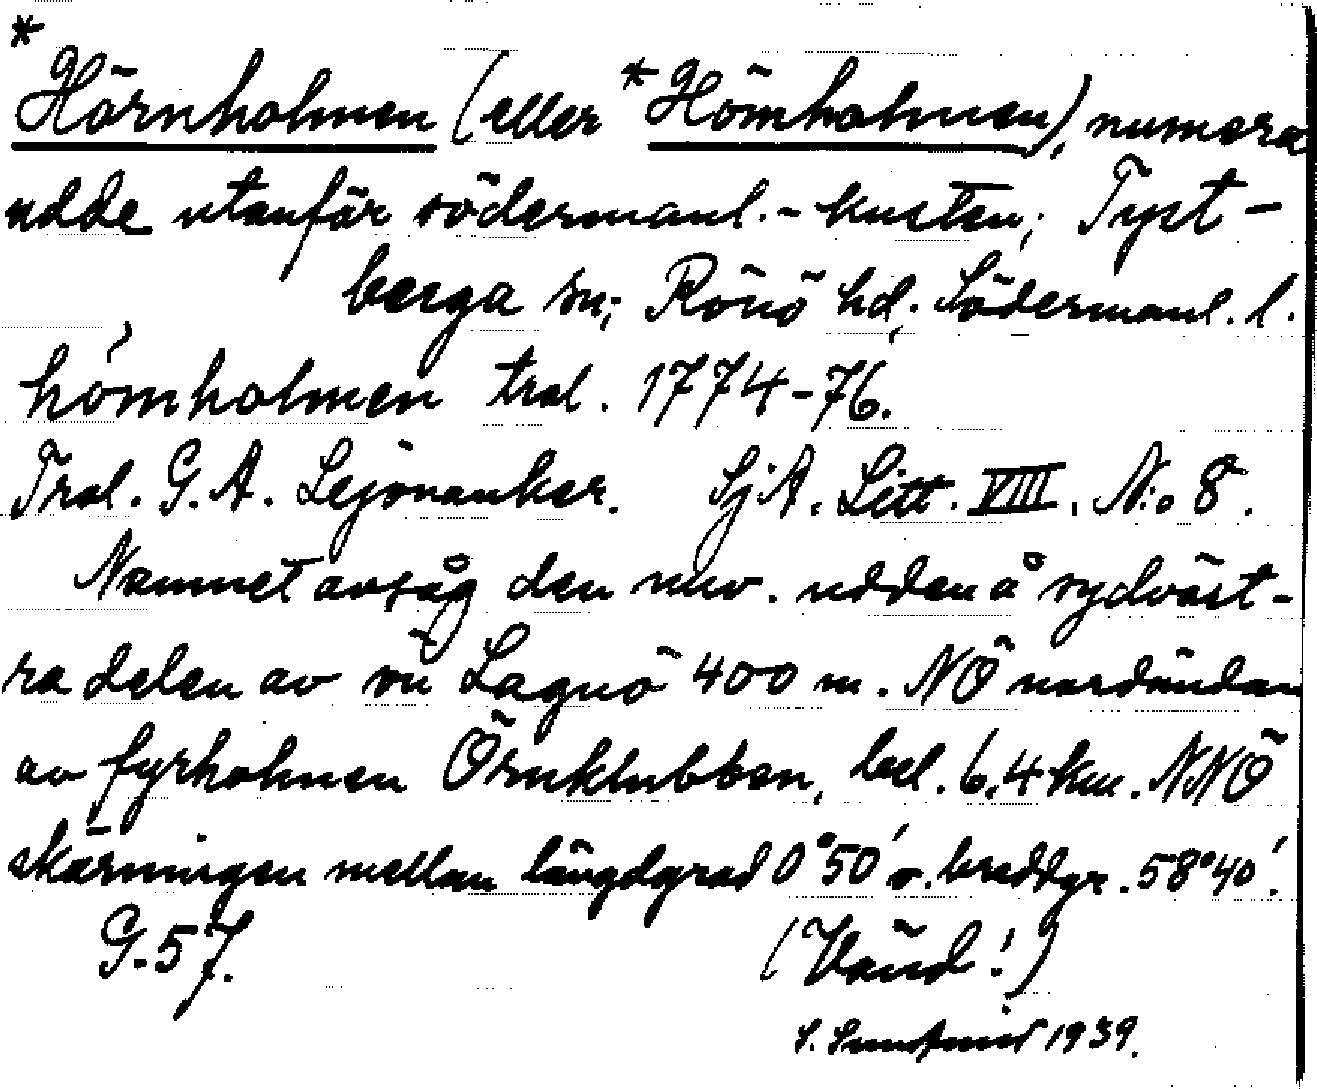 *
Hörnholmen (eller *Hömholmen), numera
udde utanför södermanl.-kusten; Tyst-
berga sn; Rönö hd; Södermanl. l.
hömholmen trol. 1774-76.
Trol. G. A. Lejonanker. SjA. Litt. VIII. N:o 8.
Namnet avsåg den nuv. udden å sydväst-
ra delen av ön Lagnö 400 m. NÖ nordändan
av fyrholmen Örnklubben, bel. 6,4 km. NNÖ
skärningen mellan längdgrad 0°50' o. breddgr. 58°40'.
G-57. (Vänd!)
1939.